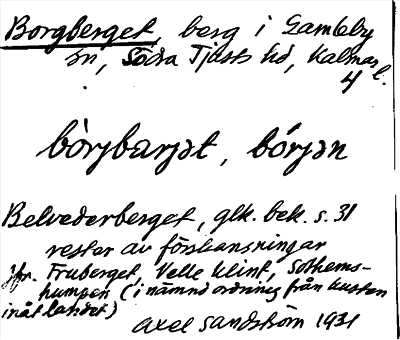 Borgberget, berg i Gamleby
sn, Södra Tjusts hd, Kalmar l.
4
bòrjbarjət, bórjən
Belvederberget, glk. bek. s. 31
rester av förskansningar
Jfr. Fruberget, Velle klint, Sothems-
humpen (i nämnd ordning från kusten
inåt landet)
Axel Sandström 1931